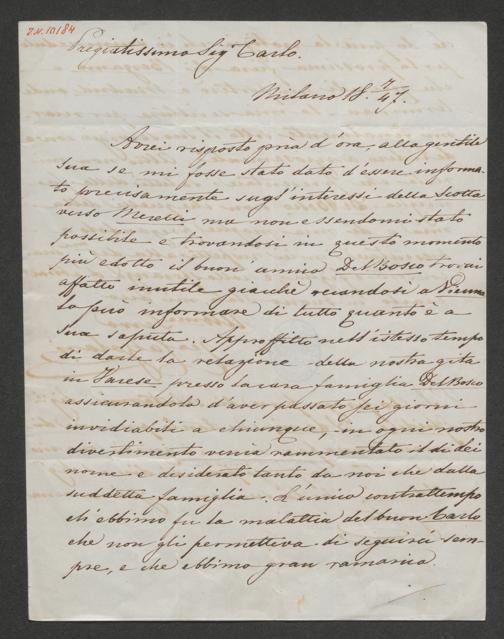 I.N. 10184
Pregiatissimo Sigr Carlo.
Milano 18. 7/47.
Avrei risposto pria d'ora, alla gentile
sua se mi fosse stato dato d'essere informa-
to precisamente sugl'interessi della Scotta
verso Merelli ma non essendomi stato
possibile e trovandosi in questo momento
più edotto il buon' amico Del Bosco trovai
affatto inutile giacchè recandosi a Vienna
lo può informare di tutto quanto è a
sua saputa. Approffitto nell'istesso tempo
di darle la relazione della nostra gita
in Varese presso la cara famiglia Del Bosco
assicurandola d'aver passato sei giorni
invidiabili a chiunque, in ogni nostro
divertimento venia rammentato il di lei
nome e desiderato tanto da noi che dalla
suddetta famiglia. L'unico contrattempo
ch'ebbimo fu la malattia del buon Carlo
che non gli permetteva di seguirci sem-
pre, e che ebbimo gran ramarico.